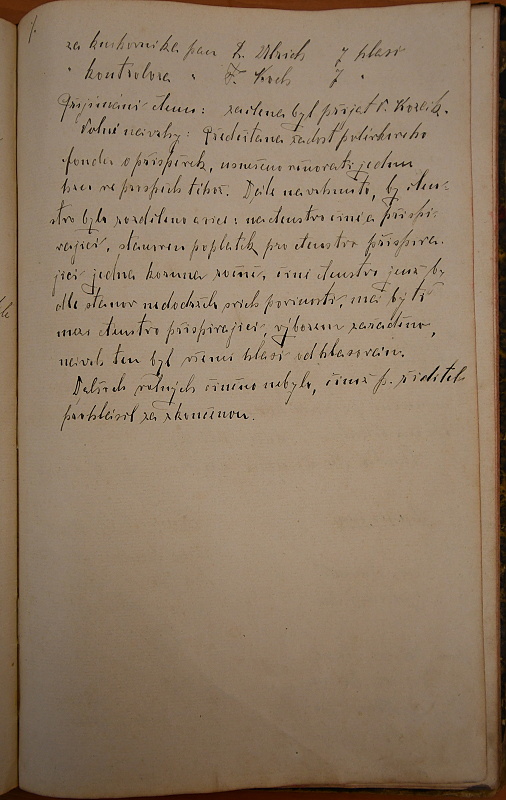 za knihovníka pan L. Ulrich 7 hlasů
" kontrolora " F. Koch 7 "
Přijímání členů: za člena byl přijat F.
Volní návrhy: Předčítána žádost
fondu o příspěvek, usnešeno věnovati jednu
ve prospěch téhož. Dále navrhnuto, by člen-
stvo bylo rozděleno a sice: na členstvo činné a přispí-
vající, stanoven poplatek pro členstvo přispíva-
jící jedna koruna ročně, činné členstvo jenž by
dle stanov nedodrželo svých povinností, má býti
mezi členstvo přispívající, výborem zařaděno,
návrh ten byl všemi hlasy odhlasován.
Dalších volných návrhů nebylo, čímž p. ředitel
prohlásil za skončenou.